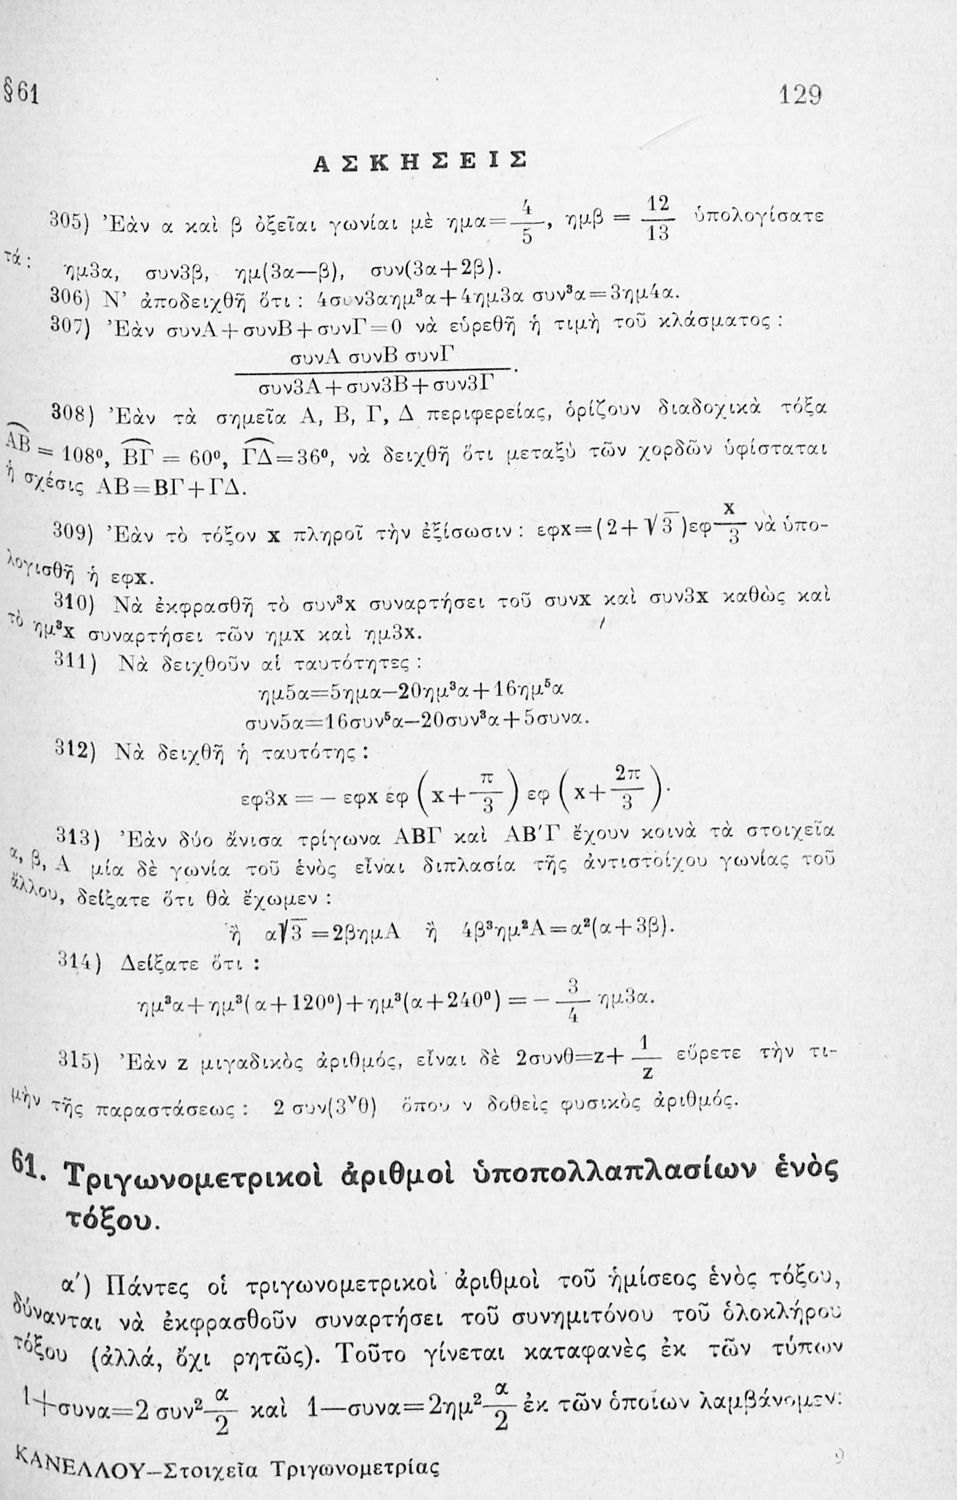 §61 129
ΑΣΚΗΣΕΙΣ
305) Ἐὰν α καὶ β ὀξεῖαι γωνίαι μὲ ημα=4/5, ημβ = 12/13 ὑπολογίσατε
τά: ημ3α, συν3β, ημ(3α—β), συν(3α+2β).
306) Ν' ἀποδειχθῆ ὅτι : 4συν3αημ³α+4ημ3α συν³α=3ημ4α.
307) Ἐὰν συνΑ+συνΒ+συνΓ=0 νὰ εὑρεθῆ ἡ τιμὴ τοῦ κλάσματος :
συνΑ συνΒ συνΓ
συν3Α+συν3Β+συν3Γ.
308) Ἐὰν τὰ σημεῖα Α, Β, Γ, Δ περιφερείας, ὁρίζουν διαδοχικὰ τόξα
ΑΒ = 108⁰, ΒΓ = 60⁰, ΓΔ=36⁰, νὰ δειχθῆ ὅτι μεταξὺ τῶν χορδῶν ὑφίσταται
ἡ σχέσις ΑΒ=ΒΓ+ΓΔ.
309) Ἐὰν τὸ τόξον x πληροῖ τὴν ἐξίσωσιν : εφx=(2+√3)εφ x/3 νὰ ὑπο-
λογισθῆ ἡ εφx.
310) Νὰ ἐκφρασθῆ τὸ συν³x συναρτήσει τοῦ συνx καὶ συν3x καθὼς καὶ
τὸ ημ³x συναρτήσει τῶν ημx καὶ ημ3x.
311) Νὰ δειχθοῦν αἱ ταυτότητες :
ημ5α=5ημα—20ημ³α+16ημ⁵α
συν5α=16συν⁵α—20συν³α+5συνα.
312) Νὰ δειχθῆ ἡ ταυτότης :
εφ3x = — εφx εφ (x+π/3) εφ (x+2π/3).
313) Ἐὰν δύο ἄνισα τρίγωνα ΑΒΓ καὶ ΑΒ'Γ ἔχουν κοινὰ τὰ στοιχεῖα
α, β, Α μία δὲ γωνία τοῦ ἑνὸς εἶναι διπλασία τῆς ἀντιστοίχου γωνίας τοῦ
ἄλλου, δείξατε ὅτι θὰ ἔχωμεν :
ἢ α√3 =2βημΑ ἢ 4β³ημ²Α=α²(α+3β).
314) Δείξατε ὅτι :
ημ³α+ημ³(α+120⁰)+ημ³(α+240⁰) = — 3/4 ημ3α.
315) Ἐὰν z μιγαδικὸς ἀριθμός, εἶναι δὲ 2συνθ=z+1/z εὕρετε τὴν τι-
μὴν τῆς παραστάσεως : 2 συν(3ᵛθ) ὅπου ν δοθεὶς φυσικὸς ἀριθμός.
61. Τριγωνομετρικοὶ ἀριθμοὶ ὑποπολλαπλασίων ἑνὸς
τόξου.
α') Πάντες οἱ τριγωνομετρικοὶ ἀριθμοὶ τοῦ ἡμίσεος ἑνὸς τόξου,
δύνανται νὰ ἐκφρασθοῦν συναρτήσει τοῦ συνημιτόνου τοῦ ὁλοκλήρου
τόξου (ἀλλά, ὄχι ρητῶς). Τοῦτο γίνεται καταφανὲς ἐκ τῶν τύπων
1+συνα=2 συν² α/2 καὶ 1—συνα=2ημ² α/2 ἐκ τῶν ὁποίων λαμβάνομεν:
ΚΑΝΕΛΛΟΥ—Στοιχεῖα Τριγωνομετρίας 9